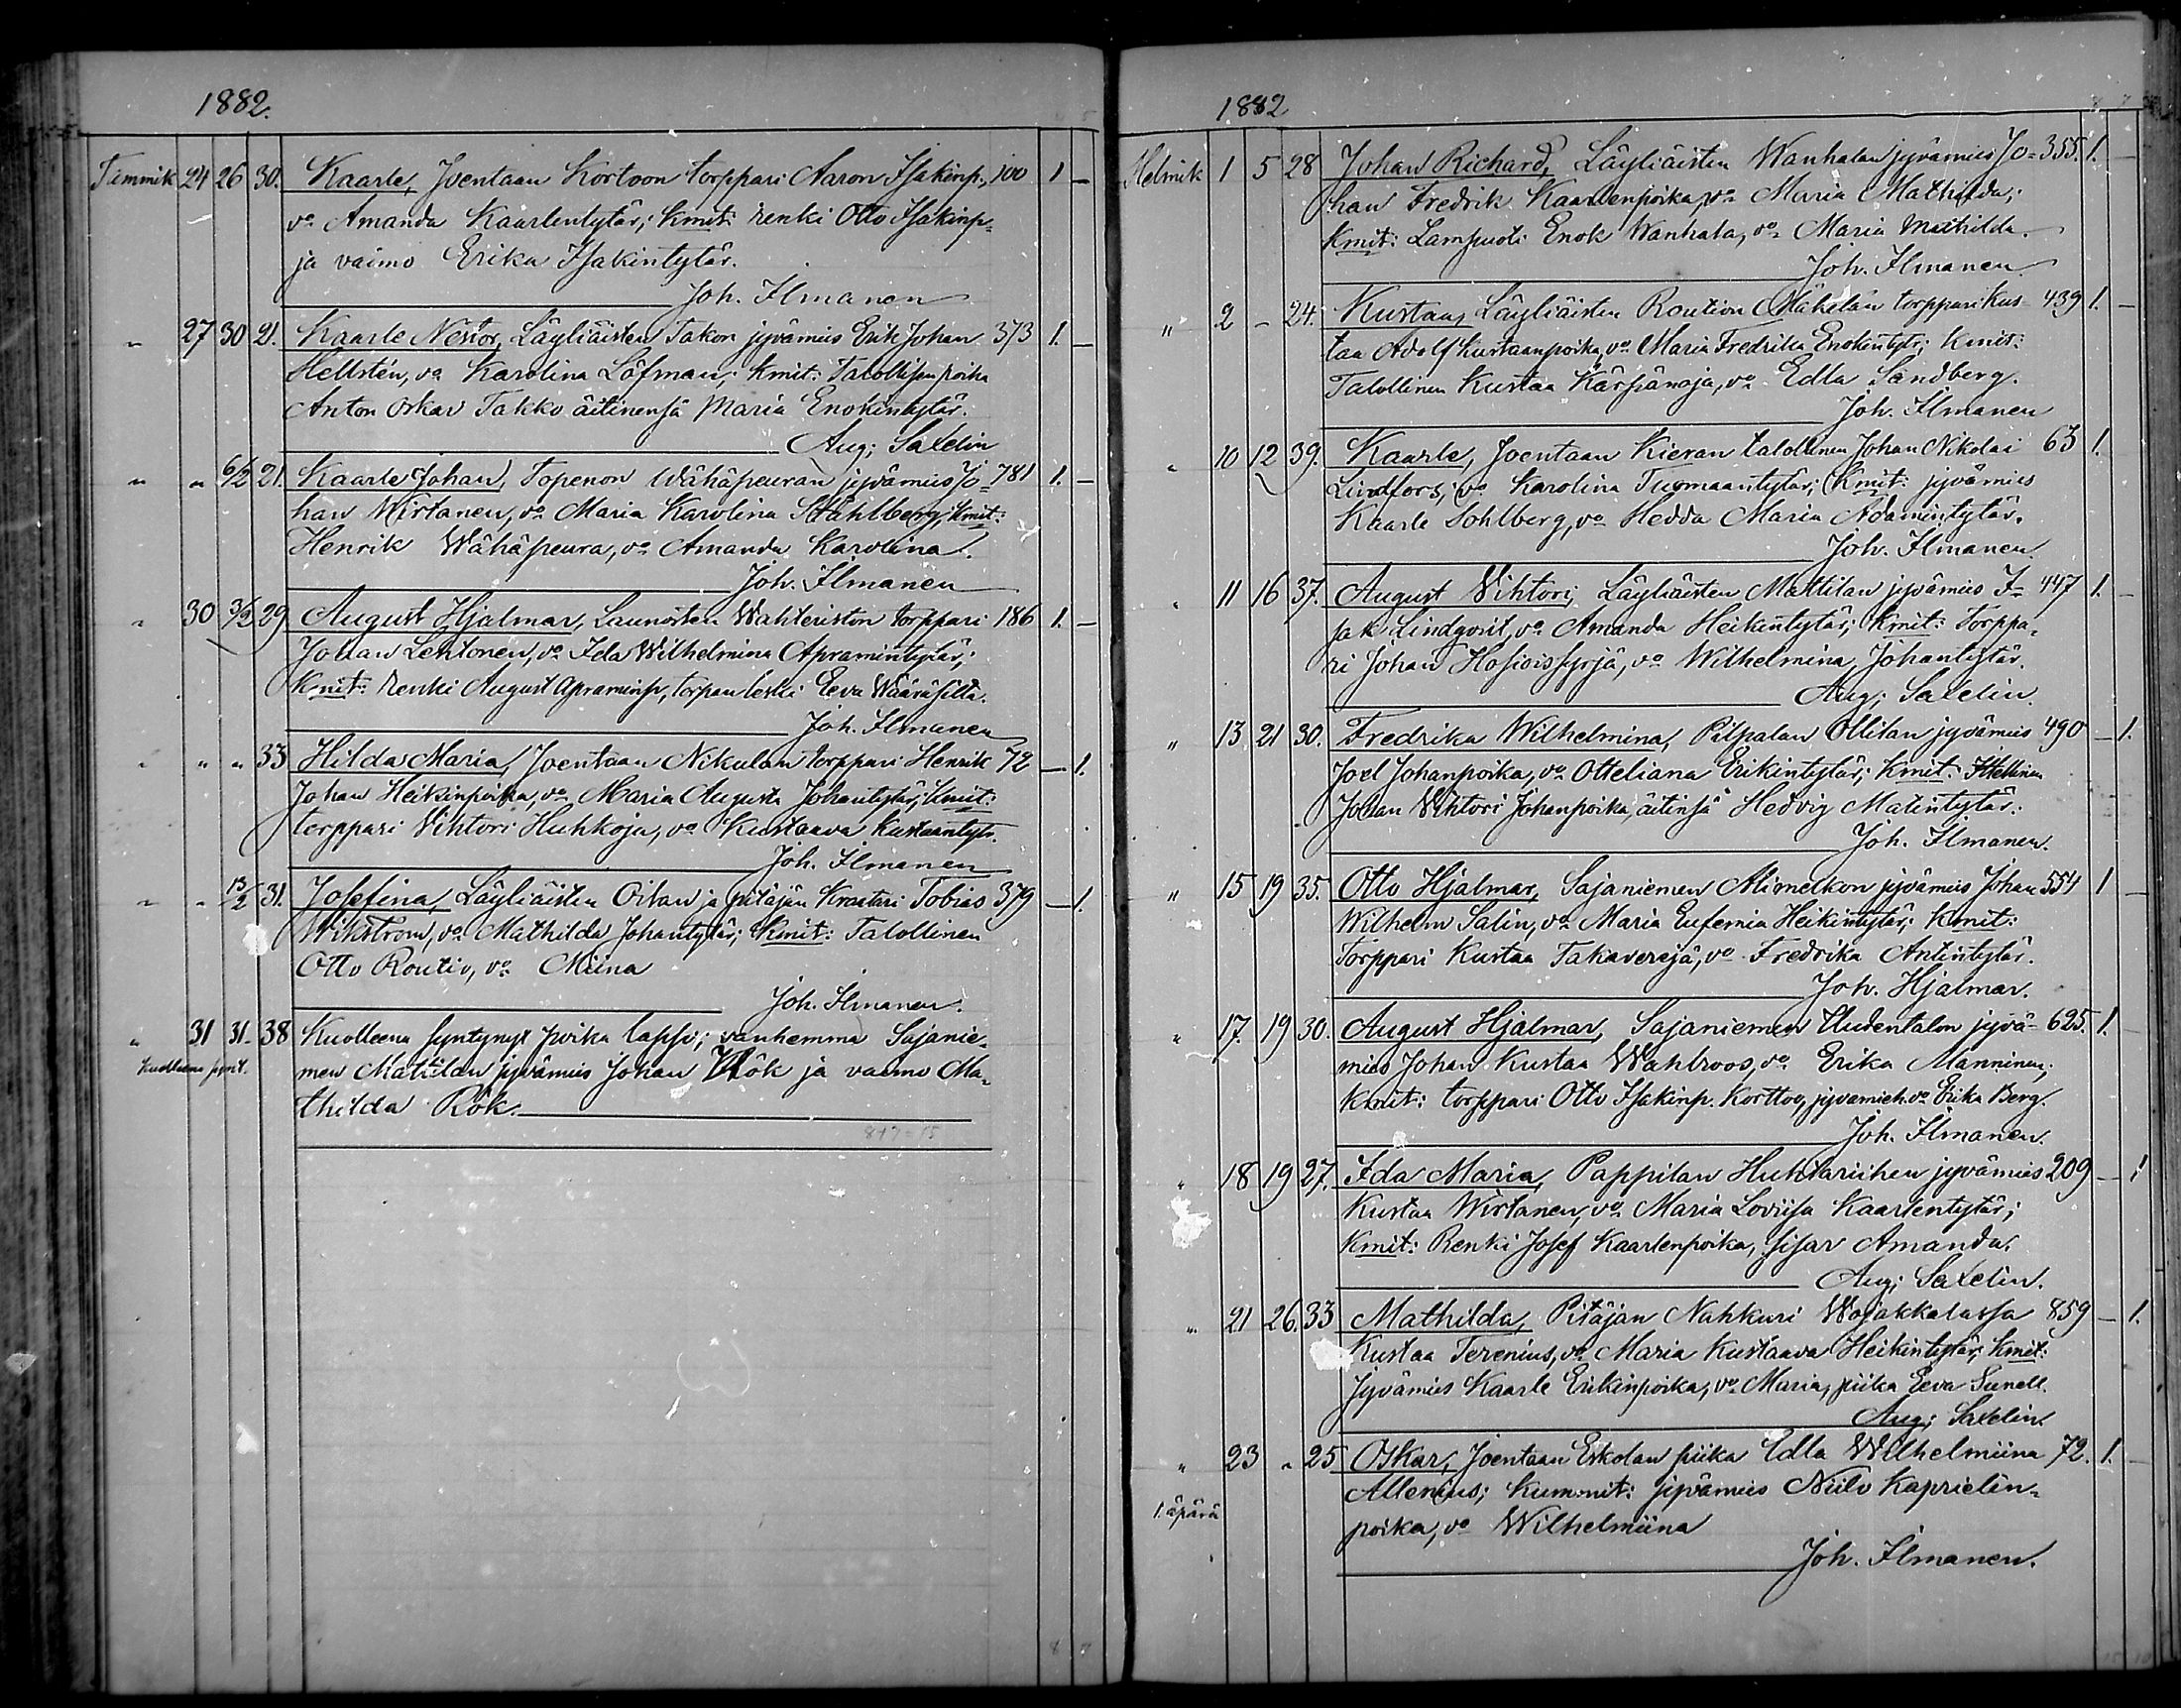 1882.
Tammik 24 26 30. Kaarle, Joentaan Kortoon torppari Aaron Isakinp., 100 1 –
vo Amanda Kaarlentytär; Kmit: renki Otto Isakinp.
ja vaimo Erika Isakintytär.
Joh. Ilmanen
" 27 30 21. Kaarle Nestor, Läyliäisten Takon jyvämies Erik Johan 373 1. –
Hellstén, vo Karolina Löfman; Kmit: Talollisen poika
Anton Oskar Takko äitinensä Maria Enokintytär.
Aug; Saxelin
" " 6/2 21. Kaarle Johan, Topenon Wähäpeuran jyvämies Jo= 781 1. –
han Wirtanen, vo Maria Karolina Ståhlberg; Kmit:
Henrik Wähäpeura, vo Amanda Karolina.
Joh. Ilmanen
" 30 3/2 29 August Hjalmar, Launosten Wahteriston torppari 186 1. –
Johan Lehtonen, vo Ida Wilhelmina Apramintytär;
Kmit: renki August Apraminp, torpan leski Eeva Wääräsilta.
Joh. Ilmanen
" " " 33 Hilda Maria, Joentaan Nikulan torppari Henrik 72 – 1.
Johan Heikinpoika, vo Maria Augusta Johantytär; Kmit:
torppari Vihtori Huhkoja, vo Kustaava Kustaantyt.
Joh. Ilmanen
" " 13/2 31. Josefina, Läyliäisten Oitan ja pitäjän Kraatari Tobias 379 – 1.
Wikström, vo Mathilda Johantytär; Kmit: Talollinen
Otto Routio, vo Miina
Joh. Ilmanen.
" 31 31 38 Kuolleena syntynyt poika lapsi; vanhemma Sajanie=
Kuolleena synt. men Mattilan jyvämies Johan Rök ja vaimo Ma=
thilda Rök.
8+7=15
1882
Helmik 1 5 28 Johan Richard, Läyliäisten Wanhalan jyvämies Jo= 355. 1.
han Fredrik Kaarlenpoika, vo Maria Mathilda;
Kmit: Lampuoti Enok Wanhala, vo Maria Mathilda.
Joh. Ilmanen.
" 2 – 24. Kustaa, Läyliäisten Roution Mäkelän torppari Kus= 439 1. –
taa Adolf Kustaanpoika, vo Maria Fredrika Enokintyt; Kmit:
Talollinen Kustaa Kärpänoja, vo Edla Sandberg.
Joh. Ilmanen
" 10 12 39. Kaarle, Joentaan Kieran talollinen Johan Nikolai 63 1.
Lindfors; vo Karolina Tuomaantytär; Kmit: jyvämies
Kaarle Sohlberg, vo Hedda Maria Adamintytär.
Joh. Ilmanen.
" 11 16 37. August Vihtori, Läyliäisten Mattilan jyvämies I= 447 1. –
sak Lindqvist, vo Amanda Heikintytär; Kmit: Torppa=
ri Johan Hosioissyrjä, vo Wilhelmina Johantytär.
Aug; Saxelin.
" 13 21 30. Fredrika Wilhelmina, Pilpalan Ollilan jyvämies 490 – 1.
Joel Johanpoika, vo Otteliana Erikintytär; Kmit: Itsellinen
Johan Vihtori Johanpoika, äitinsä Hedvig Matintytär.
Joh. Ilmanen.
" 15 19 35. Otto Hjalmar, Sajaniemen Alimelkon jyvämies Johan 554 1 –
Wilhelm Salin, vo Maria Eufemia Heikintytär; Kmit:
Torppari Kustaa Takaverejä, vo Fredrika Antintytär.
Joh. Hjalmar.
" 17. 19 30. August Hjalmar, Sajaniemen Uudentalon jyvä= 625. 1.
mies Johan Kustaa Wahlroos, vo Erika Manninen;
Kmit: torppari Otto Isakinp. Korttoo, jyvämieh. vo Erika Berg.
Joh. Ilmanen.
" 18 19 27. Ida Maria, Pappilan Huhtariihen jyvämies 209 – 1
Kustaa Wirtanen, vo Maria Loviisa Kaarlentytär;
Kmit: Renki Josef Kaarlenpoika, sisar Amanda.
Aug; Saxelin.
" 21 26. 33 Mathilda, Pitäjän Nahkuri Wojakkalassa 859 – 1.
Kustaa Terenius, vo Maria Kustaava Heikintytär; Kmit:
Jyvämies Kaarle Erikinpoika, vo Maria, piika Eeva Sunell.
Aug; Saxelin.
" 23 " 25 Oskar, Joentaan Eskolan piika Edla Wilhelmiina 72. 1. –
Allenius; Kummit: jyvämies Niilo Kaprielin=
1. äpärä poika, vo Wilhelmiina
Joh. Ilmanen.